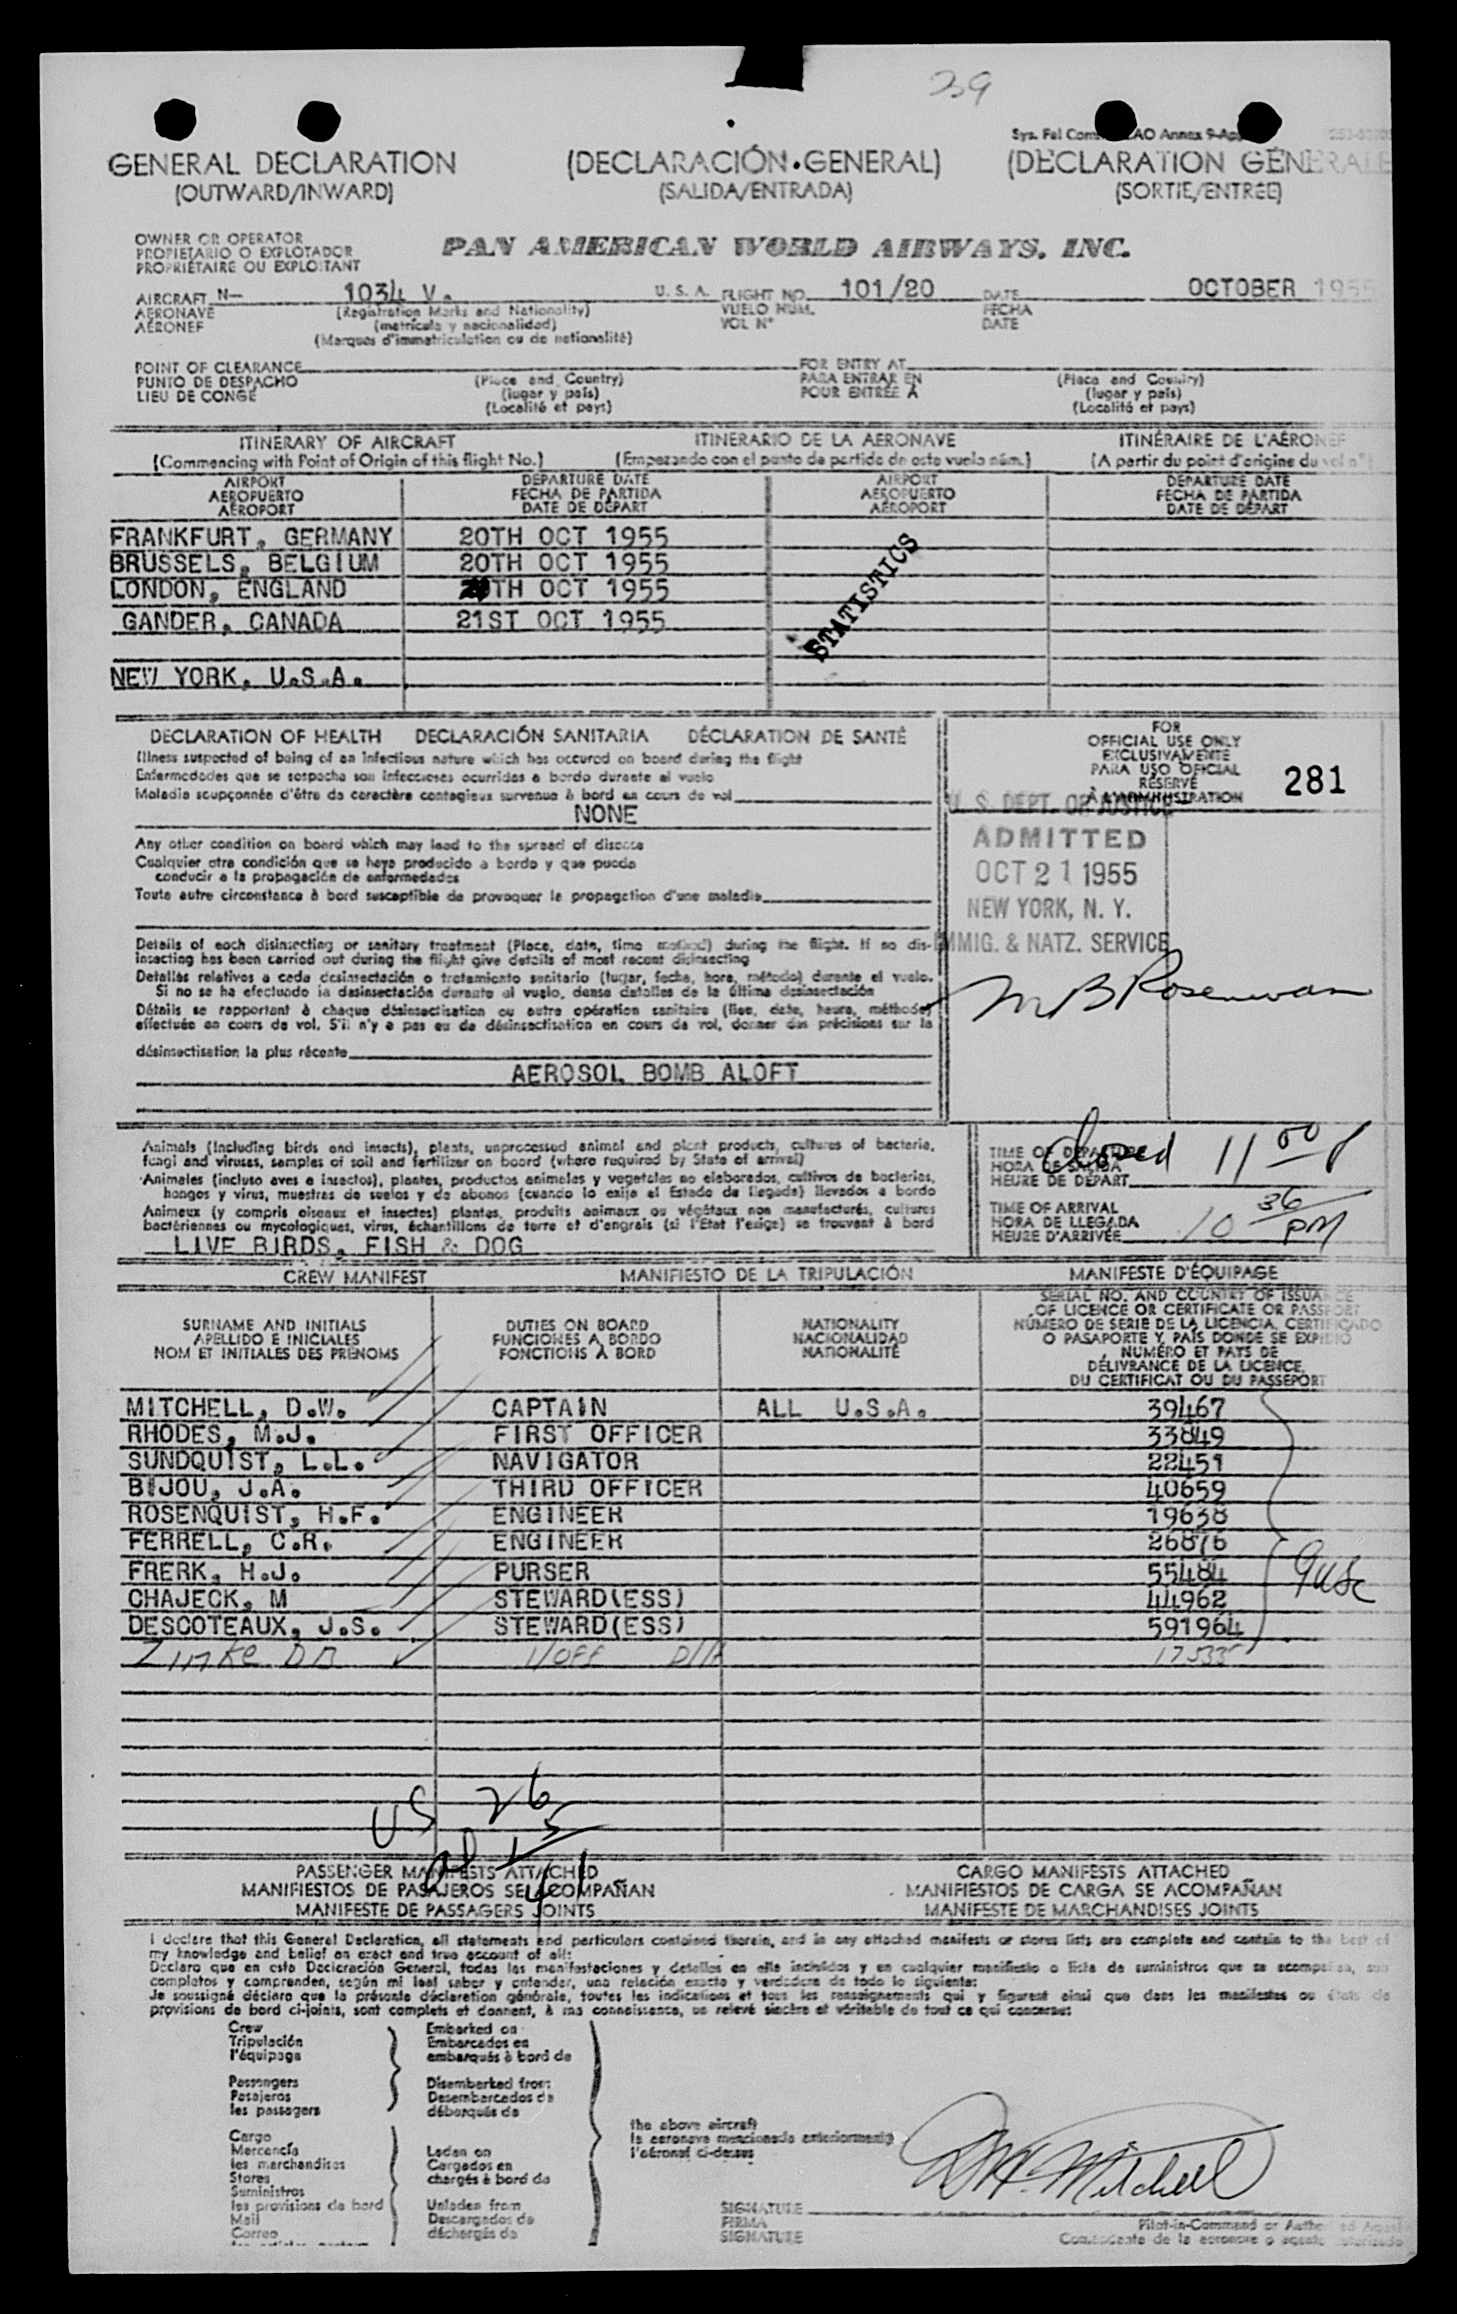 39
Sys. Fal Com
AO Annex 9-Ap
GENERAL DECLARATION (DECLARACIÓN GENERAL) (DECLARATION GÉNÉRALE
(OUTWARD/INWARD) (SALIDA/ENTRADA) (SORTIE/ENTRÉE)
OWNER OR OPERATOR
PROPIETARIO O EXPLOTADOR
PROPRIÉTAIRE OU EXPLOITANT
PAN AMERICAN WORLD AIRWAYS, INC.
AIRCRAFT N- 1034 V. U. S. A. FLIGHT NO. 101/20 DATE OCTOBER 1955
AERONAVE (Registration Marks and Nationality) VUELO NUM. FECHA
AÉRONEF (matrícula y nacionalidad) VOL N° DATE
(Marques d'immatriculation ou de nationalité)
POINT OF CLEARANCE FOR ENTRY AT
PUNTO DE DESPACHO (Place and Country) PARA ENTRAR EN (Place and Country)
LIEU DE CONGÉ (lugar y país) POUR ENTRÉE À (lugar y país)
(Localité et pays) (Localité et pays)
ITINERARY OF AIRCRAFT ITINERARIO DE LA AERONAVE ITINÉRAIRE DE L'AÉRONEF
(Commencing with Point of Origin of this flight No.) (Empezando con el punto de partida de este vuelo núm.) (A partir du point d'origine du vol n°)
AIRPORT DEPARTURE DATE AIRPORT DEPARTURE DATE
AEROPUERTO FECHA DE PARTIDA AEROPUERTO FECHA DE PARTIDA
AÉROPORT DATE DE DÉPART AÉROPORT DATE DE DÉPART
FRANKFURT, GERMANY 20TH OCT 1955
BRUSSELS, BELGIUM 20TH OCT 1955
LONDON, ENGLAND TH OCT 1955
GANDER, CANADA 21ST OCT 1955
STATISTICS
NEW YORK, U.S.A.
DECLARATION OF HEALTH DECLARACIÓN SANITARIA DÉCLARATION DE SANTÉ
Illness suspected of being of an infectious nature which has occured on board during the flight
Enfermedades que se sospecha son infecciosas ocurridas a bordo durante el vuelo
Maladie soupçonnée d'être de caractère contagieux survenue à bord en cours de vol
NONE
Any other condition on board which may lead to the spread of disease
Cualquier otra condición que se haya producido a bordo y que pueda
conducir a la propagación de enfermedades
Toute autre circonstance à bord susceptible de provoquer la propagation d'une maladie
Details of each disinsecting or sanitary treatment (Place, date, time method) during the flight. If no dis-
insecting has been carried out during the flight give details of most recent disinsecting
Detalles relativos a cada desinsectación o tratamiento sanitario (lugar, fecha, hora, método) durante el vuelo.
Si no se ha efectuado la desinsectación durante el vuelo, dense detalles de la última desinsectación
Détails se rapportant à chaque désinsectisation ou autre opération sanitaire (lieu, date, heure, méthode)
effectuée en cours de vol. S'il n'y a pas eu de désinsectisation en cours de vol, donner des précisions sur la
désinsectisation la plus récente
AEROSOL BOMB ALOFT
FOR
OFFICIAL USE ONLY
EXCLUSIVAMENTE
PARA USO OFICIAL
RÉSERVÉ
À L'ADMINISTRATION
281
U. S. DEPT. OF JUSTICE
ADMITTED
OCT 21 1955
NEW YORK, N. Y.
IMMIG. & NATZ. SERVICE
Animals (including birds and insects), plants, unprocessed animal and plant products, cultures of bacteria,
fungi and viruses, samples of soil and fertilizer on board (where required by State of arrival)
Animales (incluso aves e insectos), plantas, productos animales y vegetales no elaborados, cultivos de bacterias,
hongos y virus, muestras de suelos y de abonos (cuando lo exija el Estado de llegada) llevados a bordo
Animaux (y compris oiseaux et insectes) plantes, produits animaux ou végétaux non manufacturés, cultures
bactériennes ou mycologiques, virus, échantillons de terre et d'engrais (si l'État l'exige) se trouvant à bord
LIVE BIRDS, FISH & DOG
TIME OF DEPARTURE closed 11 00 P
HORA DE SALIDA
HEURE DE DÉPART
TIME OF ARRIVAL
HORA DE LLEGADA 10 36 PM
HEURE D'ARRIVÉE
CREW MANIFEST MANIFIESTO DE LA TRIPULACIÓN MANIFESTE D'ÉQUIPAGE
SURNAME AND INITIALS
APELLIDO E INICIALES
NOM ET INITIALES DES PRÉNOMS
DUTIES ON BOARD
FUNCIONES A BORDO
FONCTIONS À BORD
NATIONALITY
NACIONALIDAD
NATIONALITÉ
SERIAL NO. AND COUNTRY OF ISSUANCE
OF LICENCE OR CERTIFICATE OR PASSPORT
NÚMERO DE SERIE DE LA LICENCIA, CERTIFICADO
O PASAPORTE Y PAÍS DONDE SE EXPIDIÓ
NUMÉRO ET PAYS DE
DÉLIVRANCE DE LA LICENCE,
DU CERTIFICAT OU DU PASSEPORT
MITCHELL, D.W. CAPTAIN ALL U.S.A. 39467
RHODES, M.J. FIRST OFFICER 33849
SUNDQUIST, L.L. NAVIGATOR 22451
BIJOU, J.A. THIRD OFFICER 40659
ROSENQUIST, H.F. ENGINEER 19638
FERRELL, C.R. ENGINEER 26876
FRERK, H.J. PURSER 55484
CHAJECK, M STEWARD(ESS) 44962
DESCOTEAUX, J.S. STEWARD(ESS) 591964
9 usc
Zinke DB 1/Off D/H 17535
US 26
al 15
41
PASSENGER MANIFESTS ATTACHED CARGO MANIFESTS ATTACHED
MANIFIESTOS DE PASAJEROS SE ACOMPAÑAN MANIFIESTOS DE CARGA SE ACOMPAÑAN
MANIFESTE DE PASSAGERS JOINTS MANIFESTE DE MARCHANDISES JOINTS
I declare that this General Declaration, all statements and particulars contained therein, and in any attached manifests or stores lists are complete and contain to the best of
my knowledge and belief an exact and true account of all:
Declaro que en esta Declaración General, todas las manifestaciones y detalles en ella incluidos y en cualquier manifiesto o lista de suministros que se acompañan, son
completos y comprenden, según mi leal saber y entender, una relación exacta y verdadera de todo lo siguiente:
Je soussigné déclare que la présente déclaration générale, toutes les indications et tous les renseignements qui y figurent ainsi que dans les manifestes ou états de
provisions de bord ci-joints, sont complets et donnent, à ma connaissance, un relevé sincère et véritable de tout ce qui concerne:
Crew Embarked on
Tripulación Embarcados en
l'équipage embarqués à bord de
Passengers Disembarked from
Pasajeros Desembarcados de
les passagers débarqués de
the above aircraft
la aeronave mencionada anteriormente
l'aéronef ci-dessus
Cargo
Mercancía Laden on
les marchandises Cargados en
Stores chargés à bord de
Suministros
les provisions de bord Unladen from
Mail Descargados de
Correo déchargés de
D.W. Mitchell
SIGNATURE
FIRMA
SIGNATURE
Pilot-in-Command or Authorized Agent
Comandante de la aeronave o agente autorizado